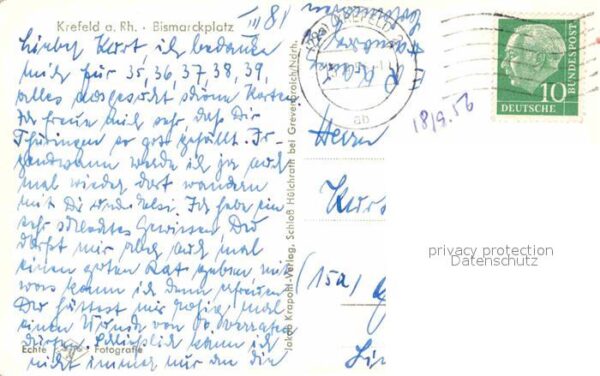 Krefeld a. Rh. · Bismarckplatz
III/81
Lieber Kurt, ich bedanke
mich für 35, 36, 37, 38, 39,
alles ausgesucht schöne Karten
Ich freue mich sehr daß Dir
Thüringen so gut gefällt. Ir-
gendwann werde ich ja auch
mal wieder dort wandern
mit Dir und Ich habe ein
sehr schlechtes Gewissen. Du
darfst mir aber auch mal
einen guten Rat geben mit
was kann ich Dich erfreuen
Du hättest mir ruhig mal
einen Wunsch von verraten
dürfen. Schließlich kann ich
nicht immer nur an die
Echte Fotografie
Jakob Krapohl-Verlag, Schloß Hülchrath bei Grevenbroich/Ndrh.
KREFELD
ab
18/9.56
Herrn
Kurt
(15a)
10
DEUTSCHE
BUNDESPOST
privacy protection
Datenschutz